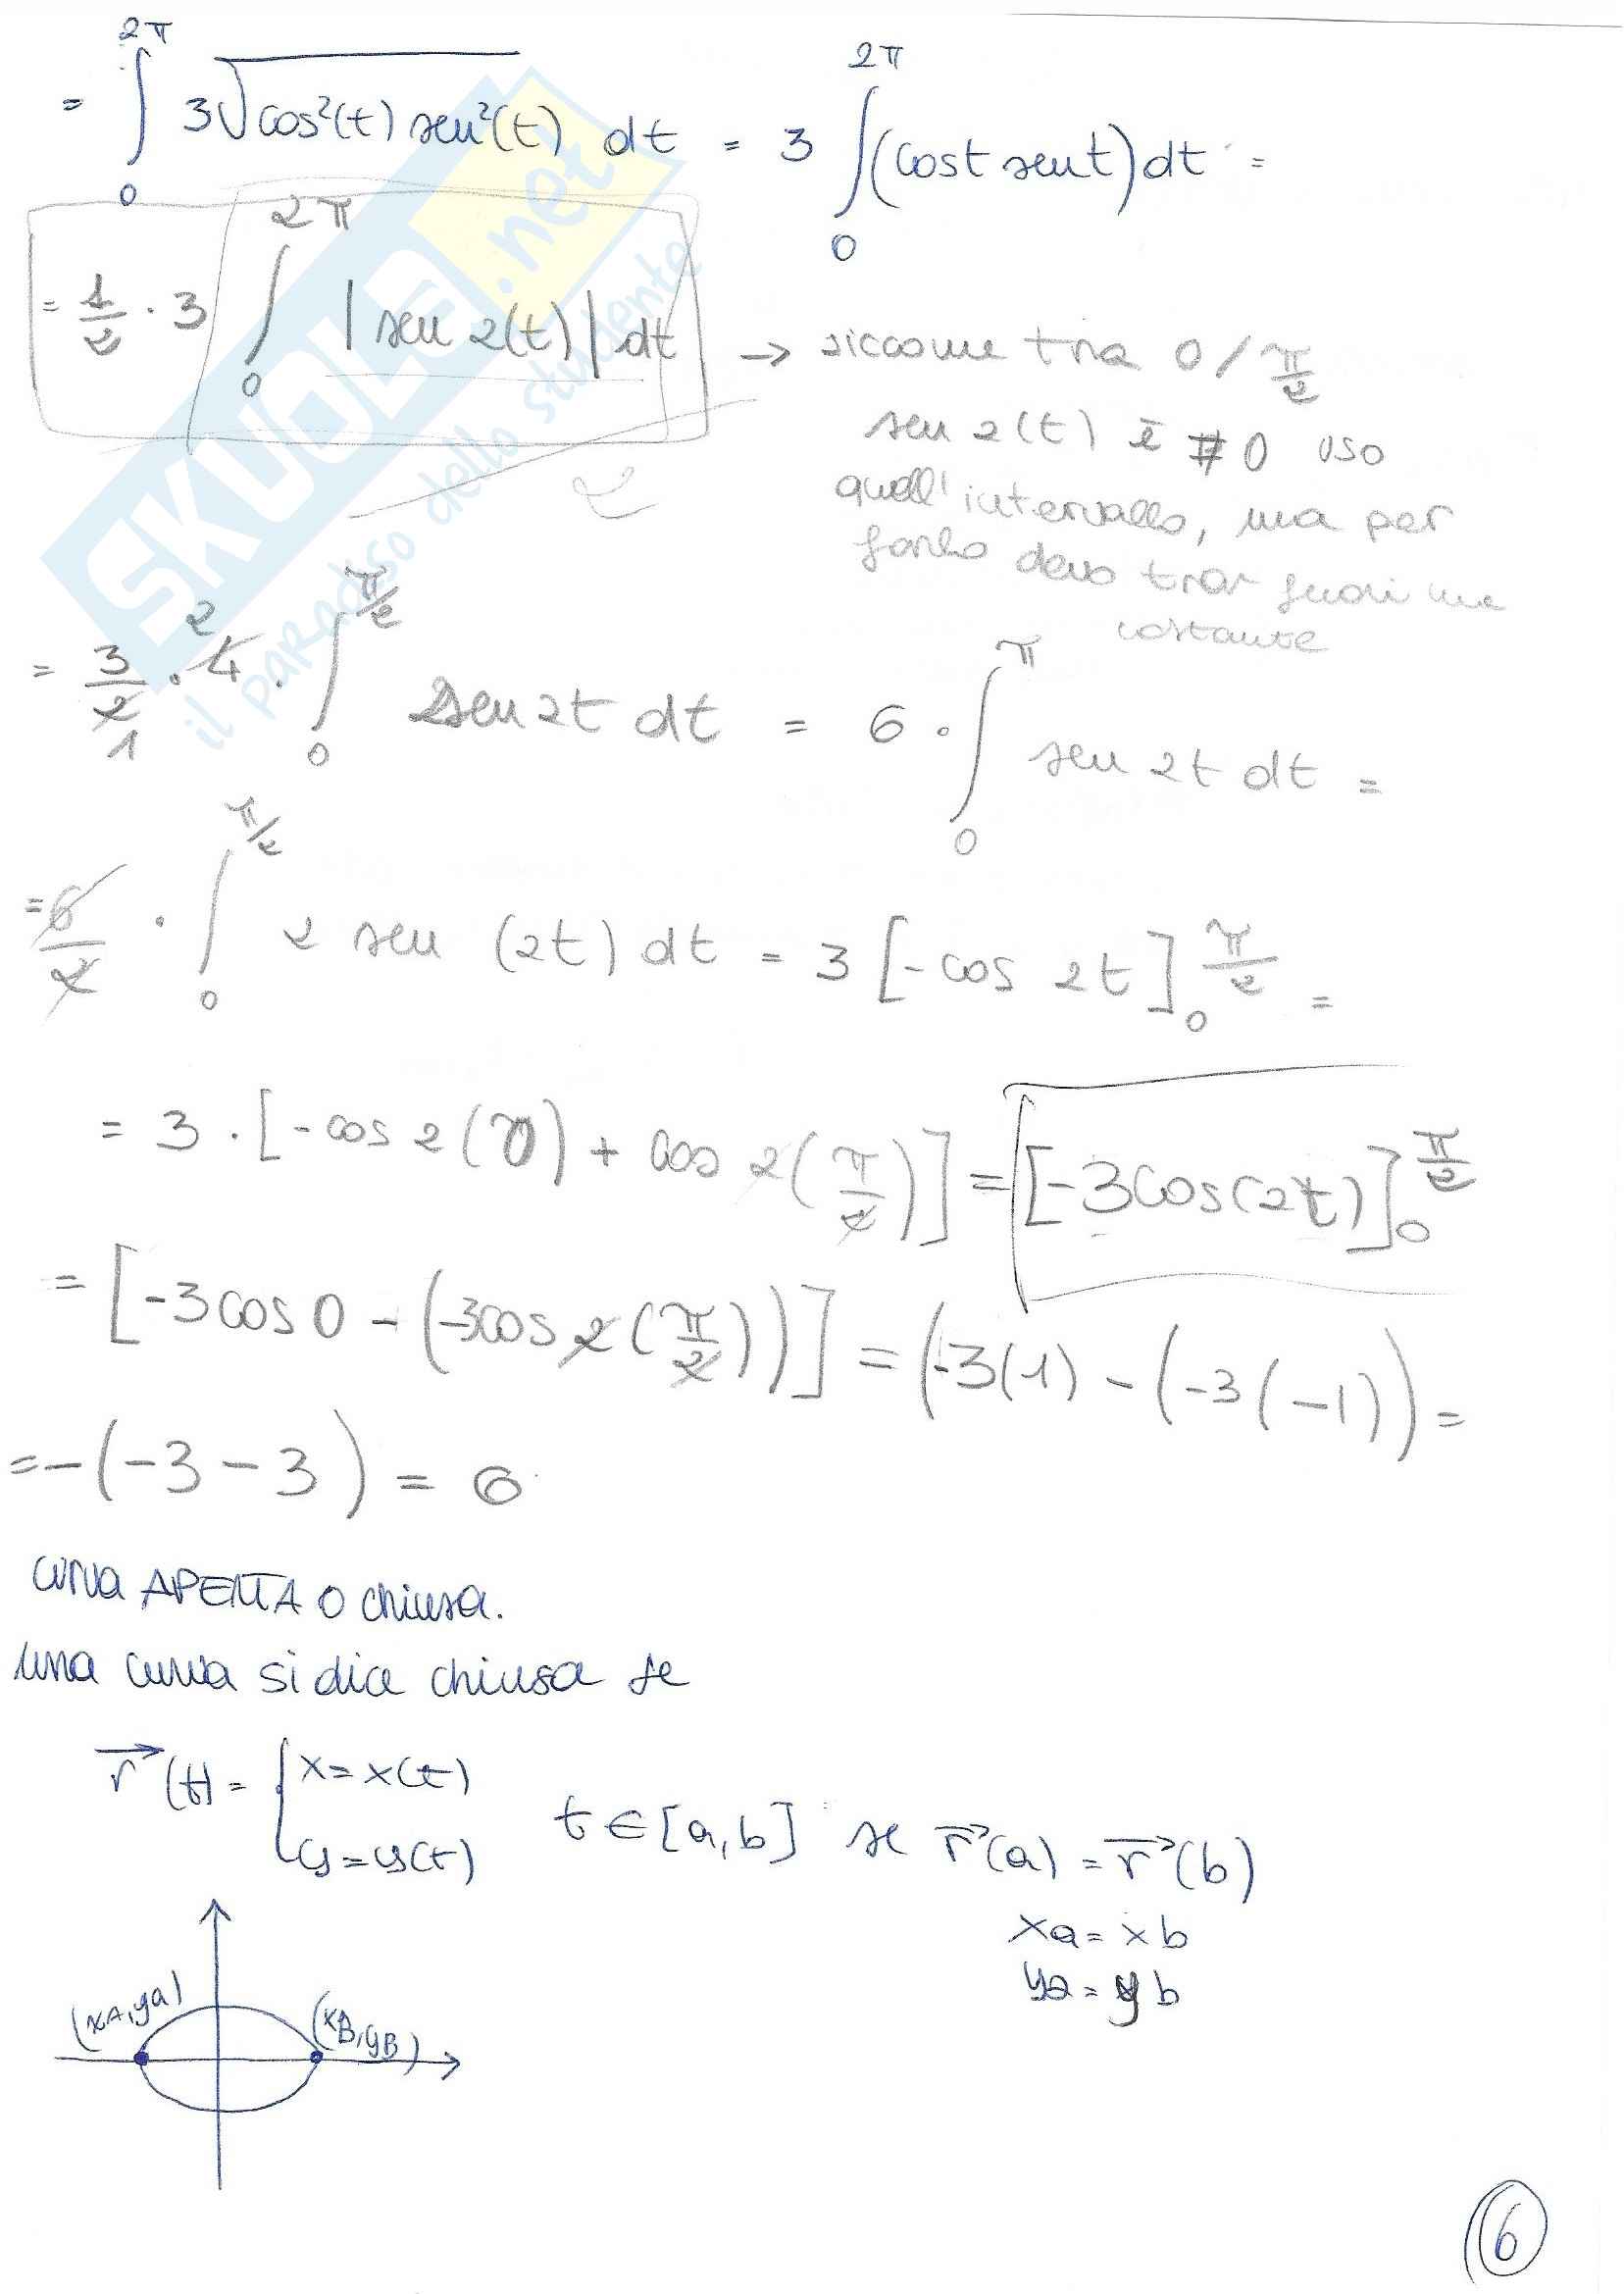 = ∫₀^{2π} 3√(cos²(t) sen²(t)) dt = 3 ∫₀^{2π} (cost sent) dt =
= 1/2 · 3 ∫₀^{2π} |sen 2(t)| dt → siccome tra 0/ π/2
sen 2(t) è ≠ 0 uso
quell'intervallo, ma per
farlo devo trar fuori una
costante
2
= 3/2 · 4 · ∫₀^{π/2} sen 2t dt = 6 · ∫₀^{π} sen 2t dt =
2
1
= 6/2 · ∫₀^{π/2} 2 sen (2t) dt = 3 [-cos 2t]₀^{π/2} =
= 3 · [-cos 2(0) + cos 2(π/2)] = [-3cos(2t)]₀^{π/2}
= [-3cos0 - (-3cos2(π/2))] = (-3(1) - (-3(-1)) =
= -(-3-3) = 6
curva APERTA o chiusa.
una curva si dice chiusa se
r⃗(t) = { x = x(t)
y = y(t)
t ∈ [a, b] se r⃗(a) = r⃗(b)
xa = xb
ya = yb
(xA, ya)
(xB, yB)
6
SKUOLA.net
il paradiso dello studente